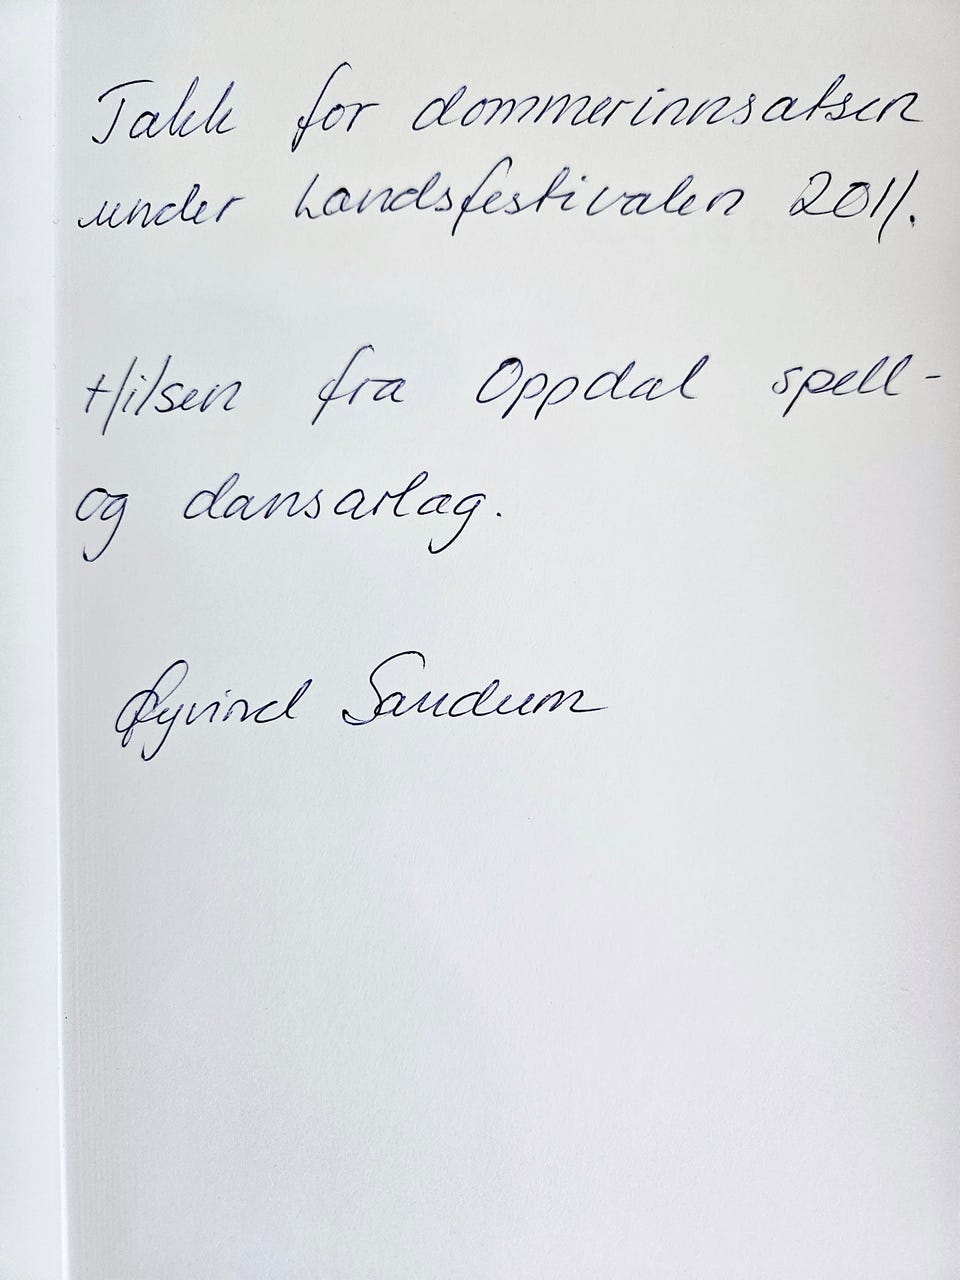 Takk for dommerinnsatsen
under Landsfestivalen 2011.
Hilsen fra Oppdal spell-
og dansarlag.
Øyvind Sandum